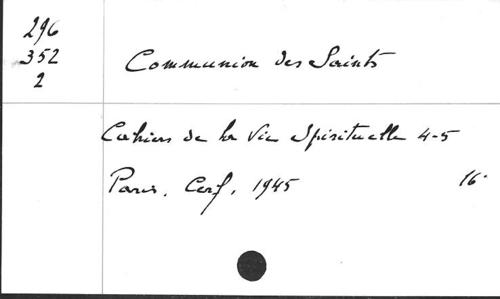 296
352
2
Communion des Saints
Cahiers de la Vie Spirituelle 4-5
Paris, Cerf, 1945 16°